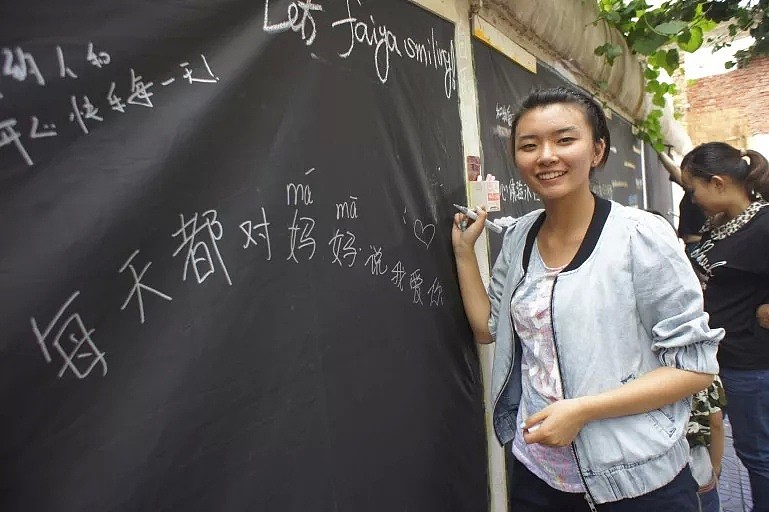 Let Jaiya smiling!
纳人和
开心快乐每一天!
mā mā
每天都对妈妈说我爱你